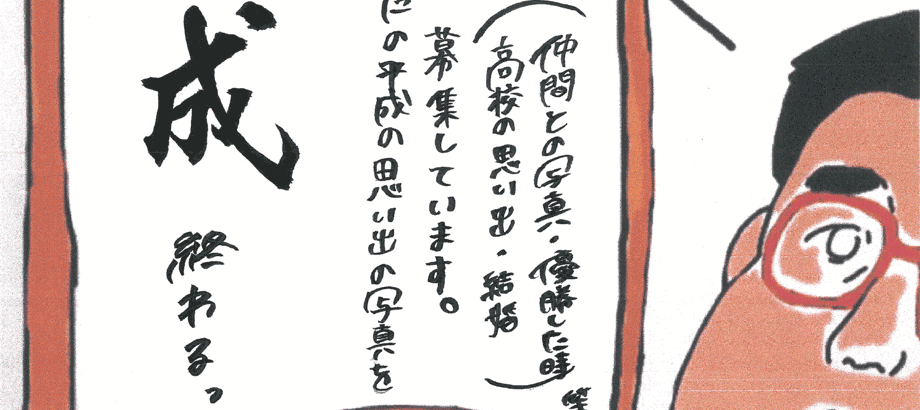 仲間との写真・優勝した時
高校の思い出・結婚
募集しています。
の平成の思い出の写真を
成
終わる。